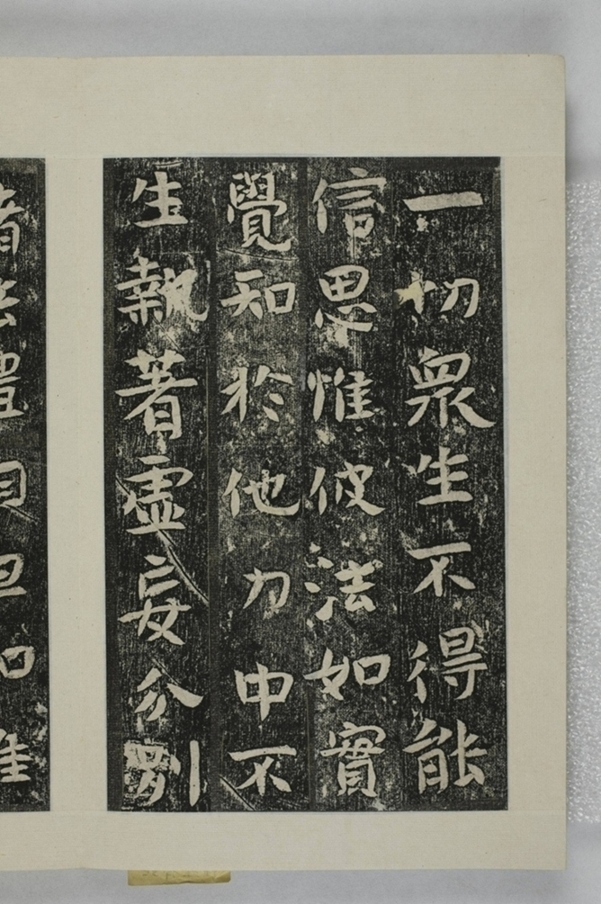 一切衆生不得能
信思惟彼法如實
覺知於他力中不
生執著虛妄分別